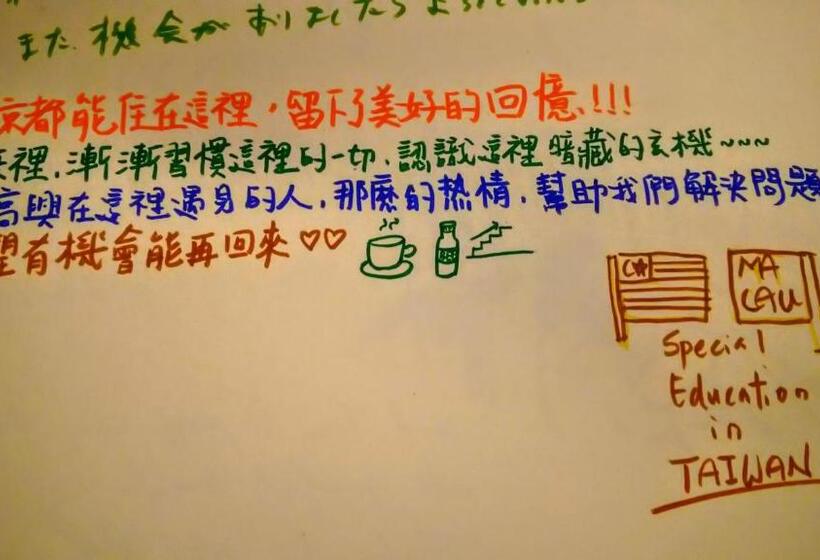 また機会があり
京都能住在這裡,留下了美好的回憶!!!
裡,漸漸習慣這裡的一切,認識這裡暗藏的玄機~~~
高興在這裡遇見的人,那麼的热情,幫助我們解決問題
望有機會能再回來♡♡
MA
CAU
Special
Education
in
TAIWAN